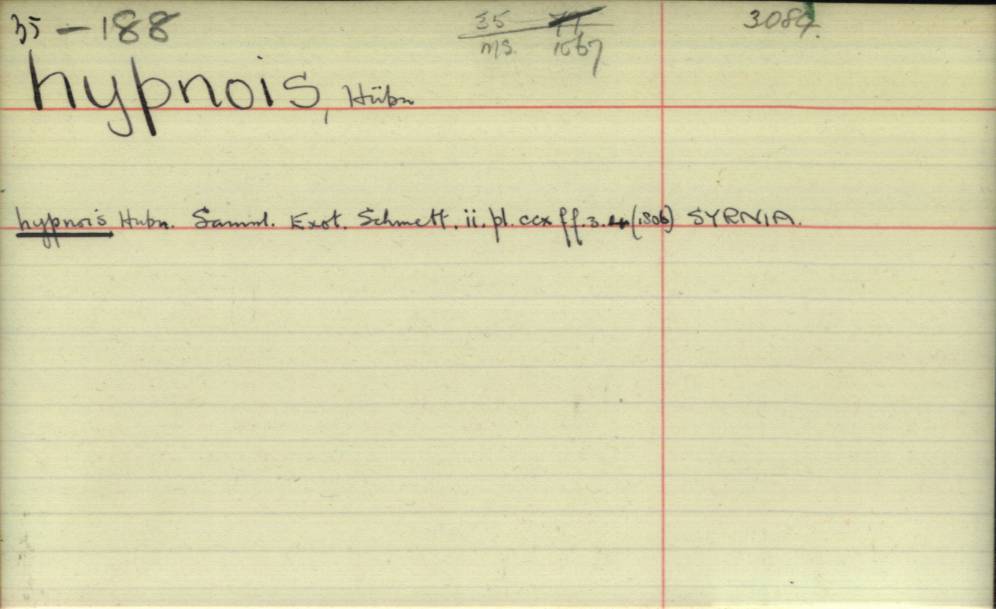 35-188
35 77 3084.
ms. 1667
hypnois, Hübn
hypnois Hubn. Samml. Exot. Schmett. ii. pl. ccx ff. 3. (1806) SYRNIA.